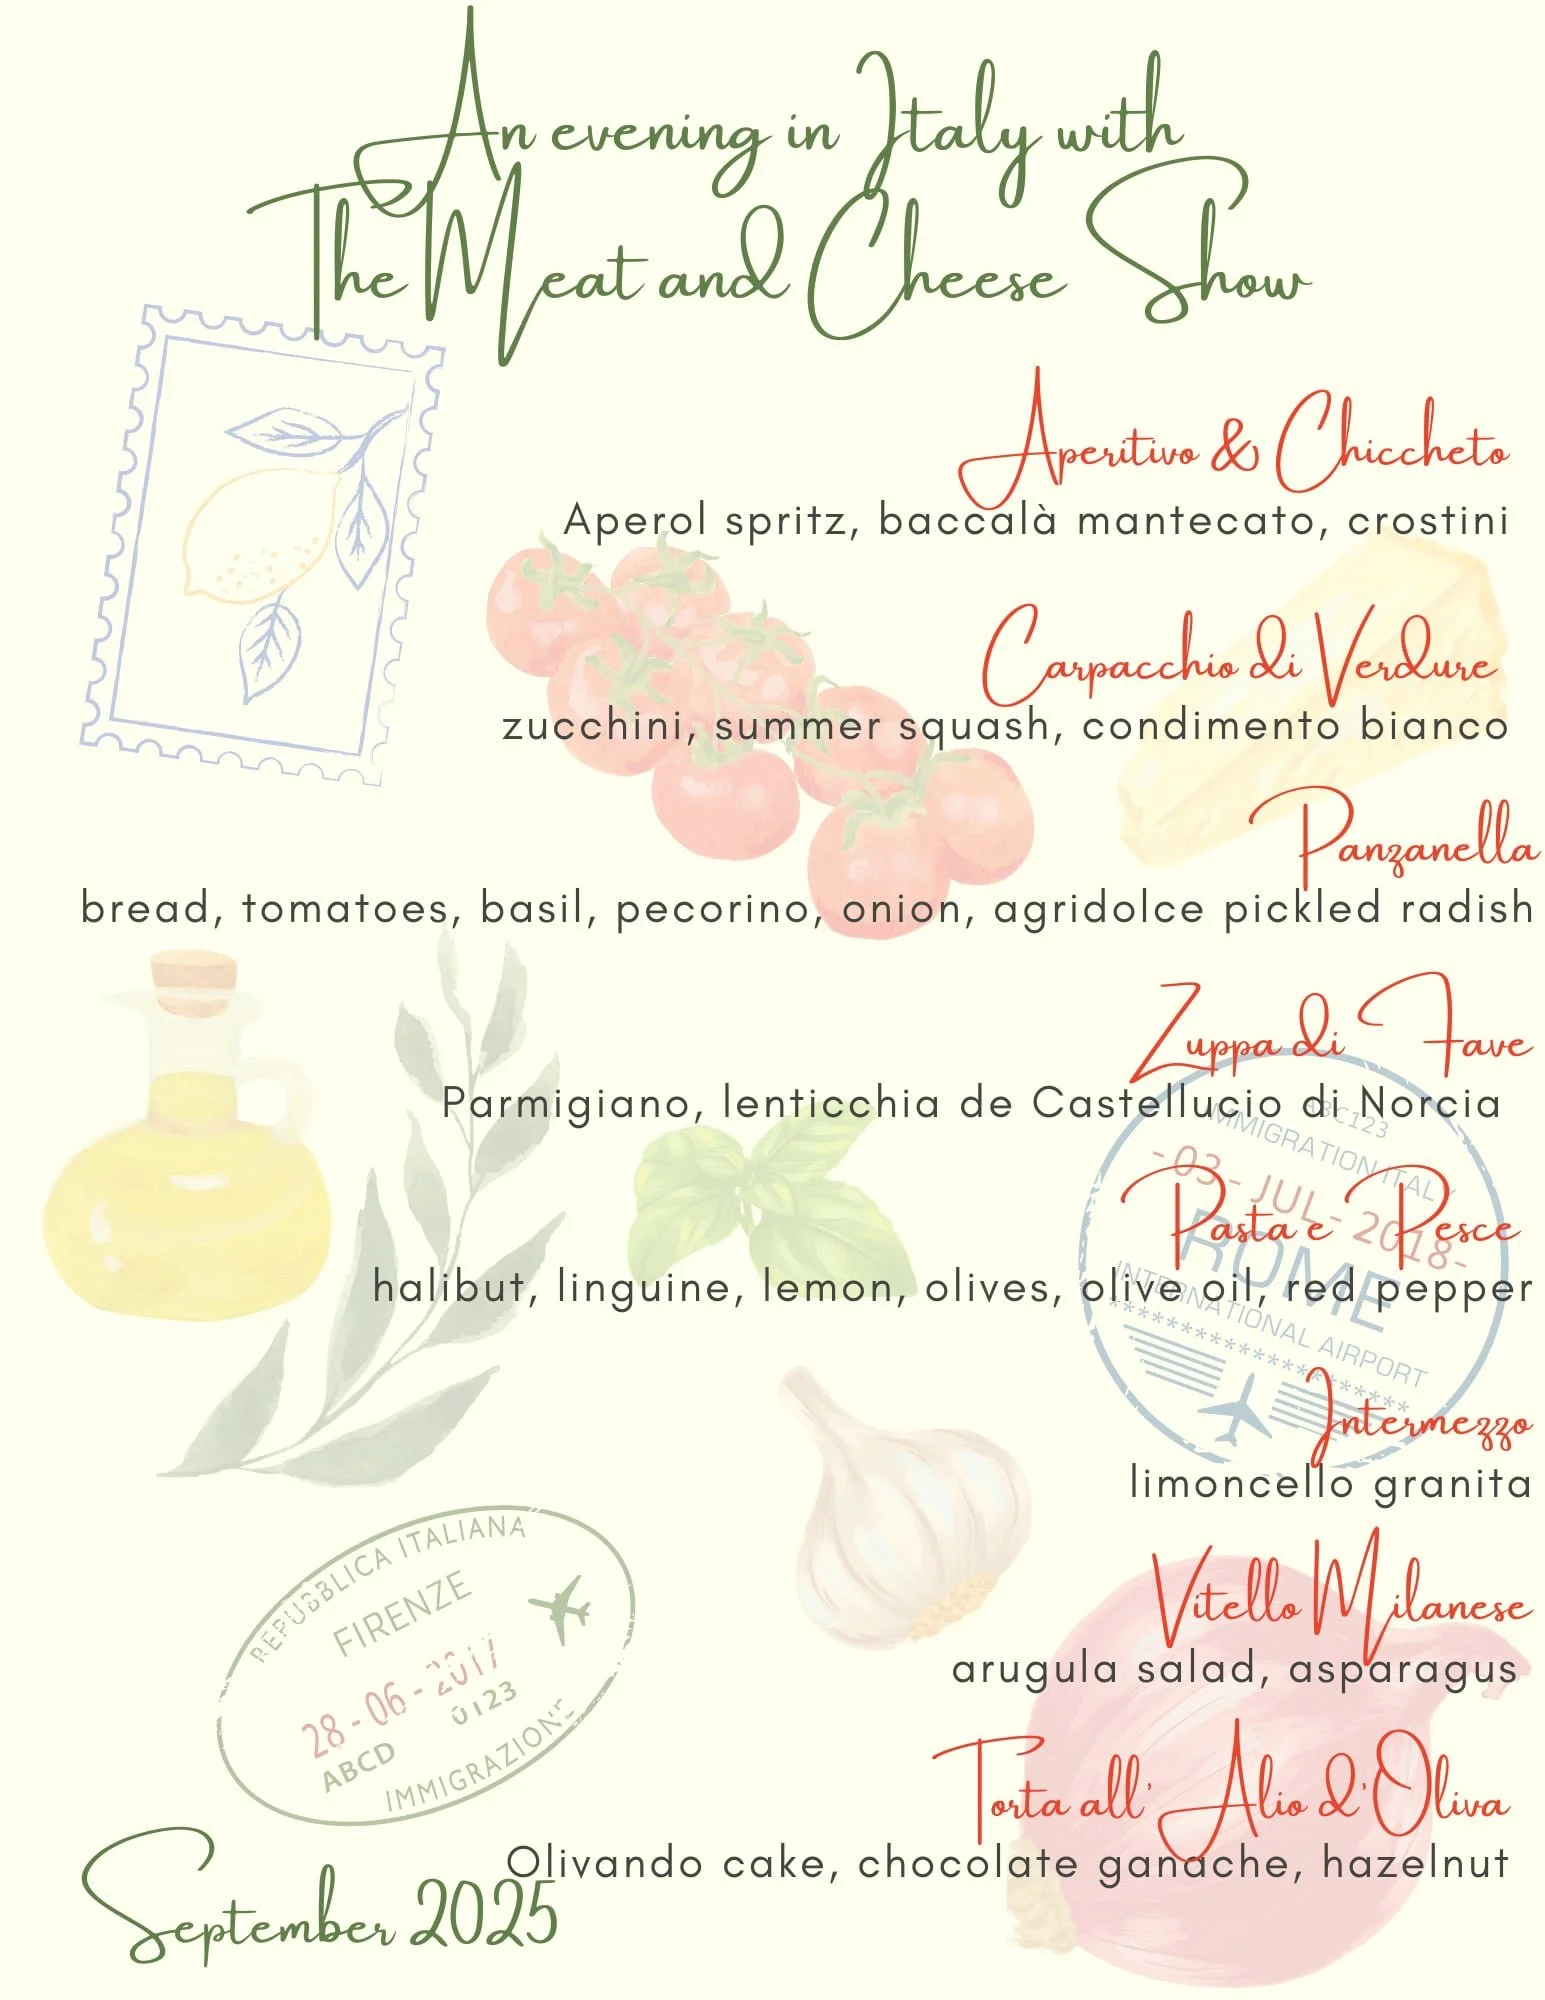 An evening in Italy with
The Meat and Cheese Show
Aperitivo & Chiccheto
Aperol spritz, baccalà mantecato, crostini
Carpacchio di Verdure
zucchini, summer squash, condimento bianco
Panzanella
bread, tomatoes, basil, pecorino, onion, agridolce pickled radish
Zuppa di Fave
Parmigiano, lenticchia de Castellucio di Norcia
ABC123
IMMIGRATION ITALY
-03-JUL-2018-
ROME
INTERNATIONAL AIRPORT
*********************
Pasta e Pesce
halibut, linguine, lemon, olives, olive oil, red pepper
Intermezzo
limoncello granita
Vitello Milanese
arugula salad, asparagus
REPUBBLICA ITALIANA
FIRENZE
28-06-2017
0123
ABCD
IMMIGRAZIONE
Torta all' Alio d'Oliva
Olivando cake, chocolate ganache, hazelnut
September 2025